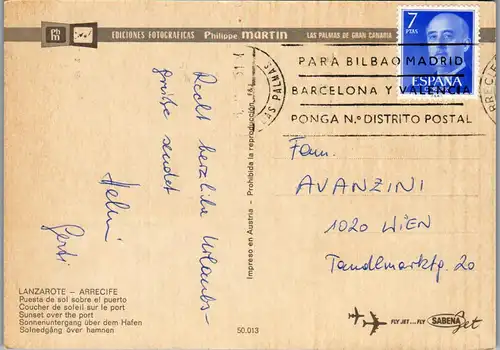 EDICIONES FOTOGRAFICAS Philippe MARTIN LAS PALMAS DE GRAN CANARIA
7
PTAS
ESPAÑA
PARA BILBAO MADRID
BARCELONA Y VALENCIA
PONGA N.º DISTRITO POSTAL
Recht herzliche Urlaubs-
grüße sendet
Gerti
Impreso en Austria - Prohibida la reproducción
Fam.
AVANZINI
1020 WIEN
Tandlmarktg. 20
LANZAROTE - ARRECIFE
Puesta de sol sobre el puerto
Coucher de soleil sur le port
Sunset over the port
Sonnenuntergang über dem Hafen
Solnedgång över hamnen
50.013
FLY JET...FLY SABENA Jet